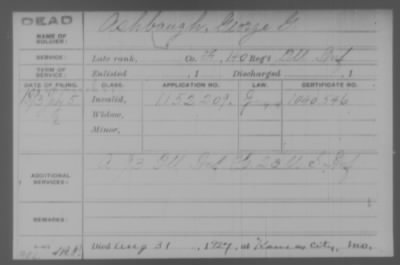 DEAD
NAME OF SOLDIER: Ashbaugh, George G.
SERVICE: Late rank, Co. H, 140 Reg't Ill Inf
TERM OF SERVICE: Enlisted , 1 Discharged , 1
DATE OF FILING. CLASS. APPLICATION NO. LAW. CERTIFICATE NO.
Invalid, 1152209 1040546
Widow,
Minor,
ADDITIONAL SERVICES: A 93 Ill Inf 23 U. S. Inf
REMARKS:
Died Aug 31 , 1927, at Kansas City, Mo.